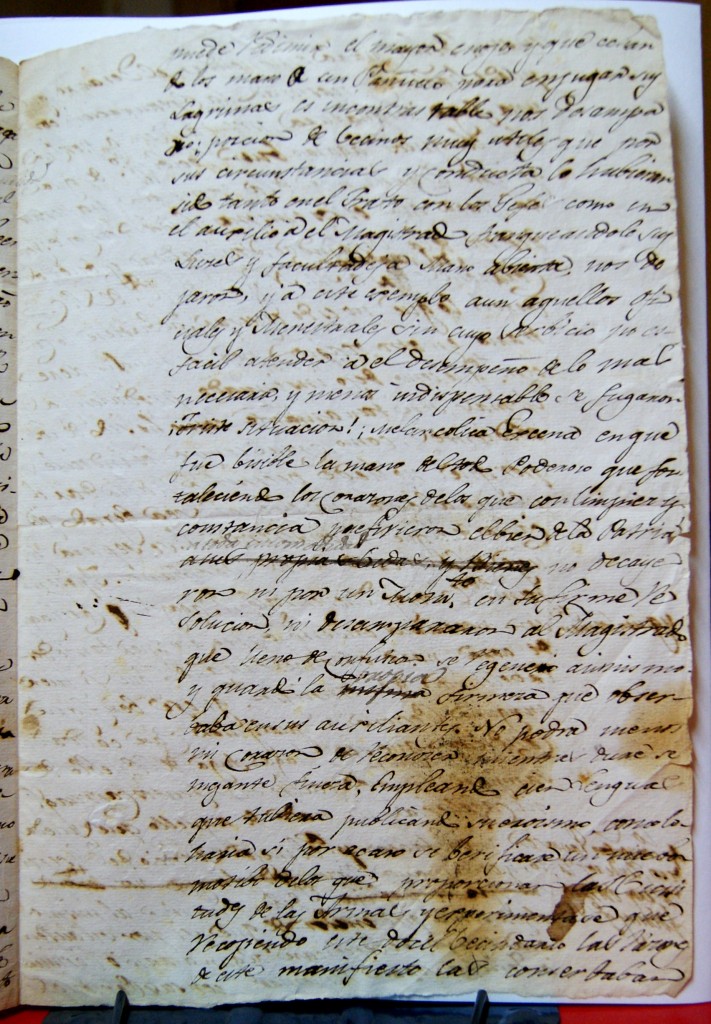 puede redimir el mayor enojo, y que cesan
de los mano de un Pañuelo para enjugar sus
Lagrimas es incontrastable nos desampa
porcion de becinos muy utiles que por
sus circunstancias y conducta lo hubieran
sido tanto en el Trato con los Gefes como en
el auxilio a el Magistrado franqueandole sus
Luses y facultades a mano abierta, nos de
jaron, y a este exemplo aun aquellos ofi
ciales y Menestrales sin cuyo servicio no es
facil atender a el desempeño de lo mas
necesario, y menos indispensable se fugaron
Triste situacion! ¡Melancolica Escena en que
fue bisible la mano del Todo Poderoso que for
taleciendo los corazones de los que con limpieza y
constancia prefirieron el bien de la Patria
a sus propias vidas, y no decaye
ron ni por un Instante, en su firme Re
solucion, ni desampararon al Magistrado
que lleno de continuo se regenero a si mismo
y guardó la propia firmeza que obser
baba en sus auxiliantes. No podra menos
mi corazon de reconocer mientras dure se
mejante fineza, Empleando cien lenguas
que tubiera publicando su eroismo, como lo
haria si por acaso se berificare
de los que proporcionan las Vicisi
tudes de las Armas, y experimentase que
recojiendo este docil becindario las
de este manifiesto las conserbaban